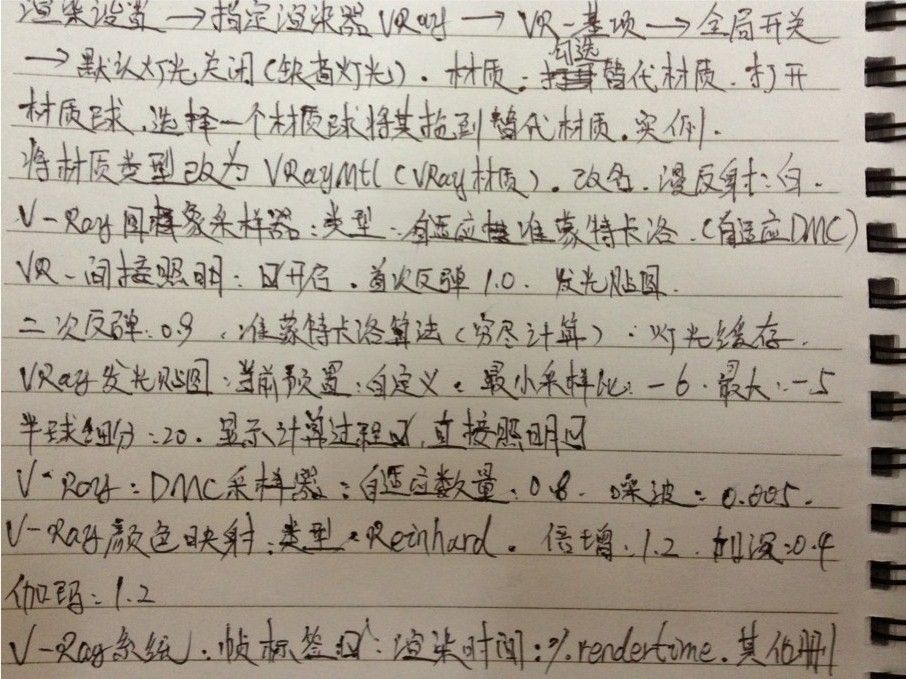 渲染设置→指定渲染器VRay→VR-基项→全局开关
→默认灯光关闭(缺省灯光).材质:勾选替代材质.打开
材质球.选择一个材质球将其拖到替代材质.实例.
将材质类型改为VRayMtl(VRay材质).改名.漫反射:白.
V-Ray图象采样器:类型.自适应准蒙特卡洛.(自适应DMC)
VR-间接照明:☑开启.首次反弹1.0.发光贴图.
二次反弹:0.9.准蒙特卡洛算法(穷尽计算).灯光缓存.
VRay发光贴图:当前预置:自定义.最小采样比:-6.最大:-5
半球细分:20.显示计算过程☑,直接照明☑
V-Ray:DMC采样器:自适应数量:0.8.噪波:0.005.
V-Ray颜色映射:类型:Reinhard.倍增:1.2.加深:0.4
伽玛:1.2
V-Ray系统.帧标签☑:渲染时间:%rendertime.其他删